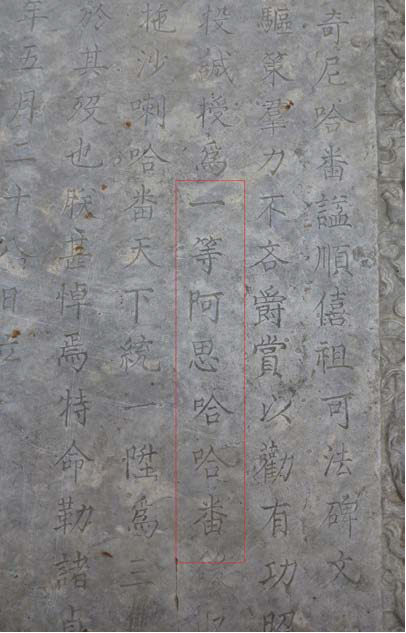 奇尼哈番諡順僖祖可法碑文
驅策羣力不吝爵賞以勸有功昭
投誠授爲一等阿思哈哈番
拖沙喇哈番天下統一陞爲三
於其歿也朕甚悼焉特命勒諸貞
年五月二十八日立